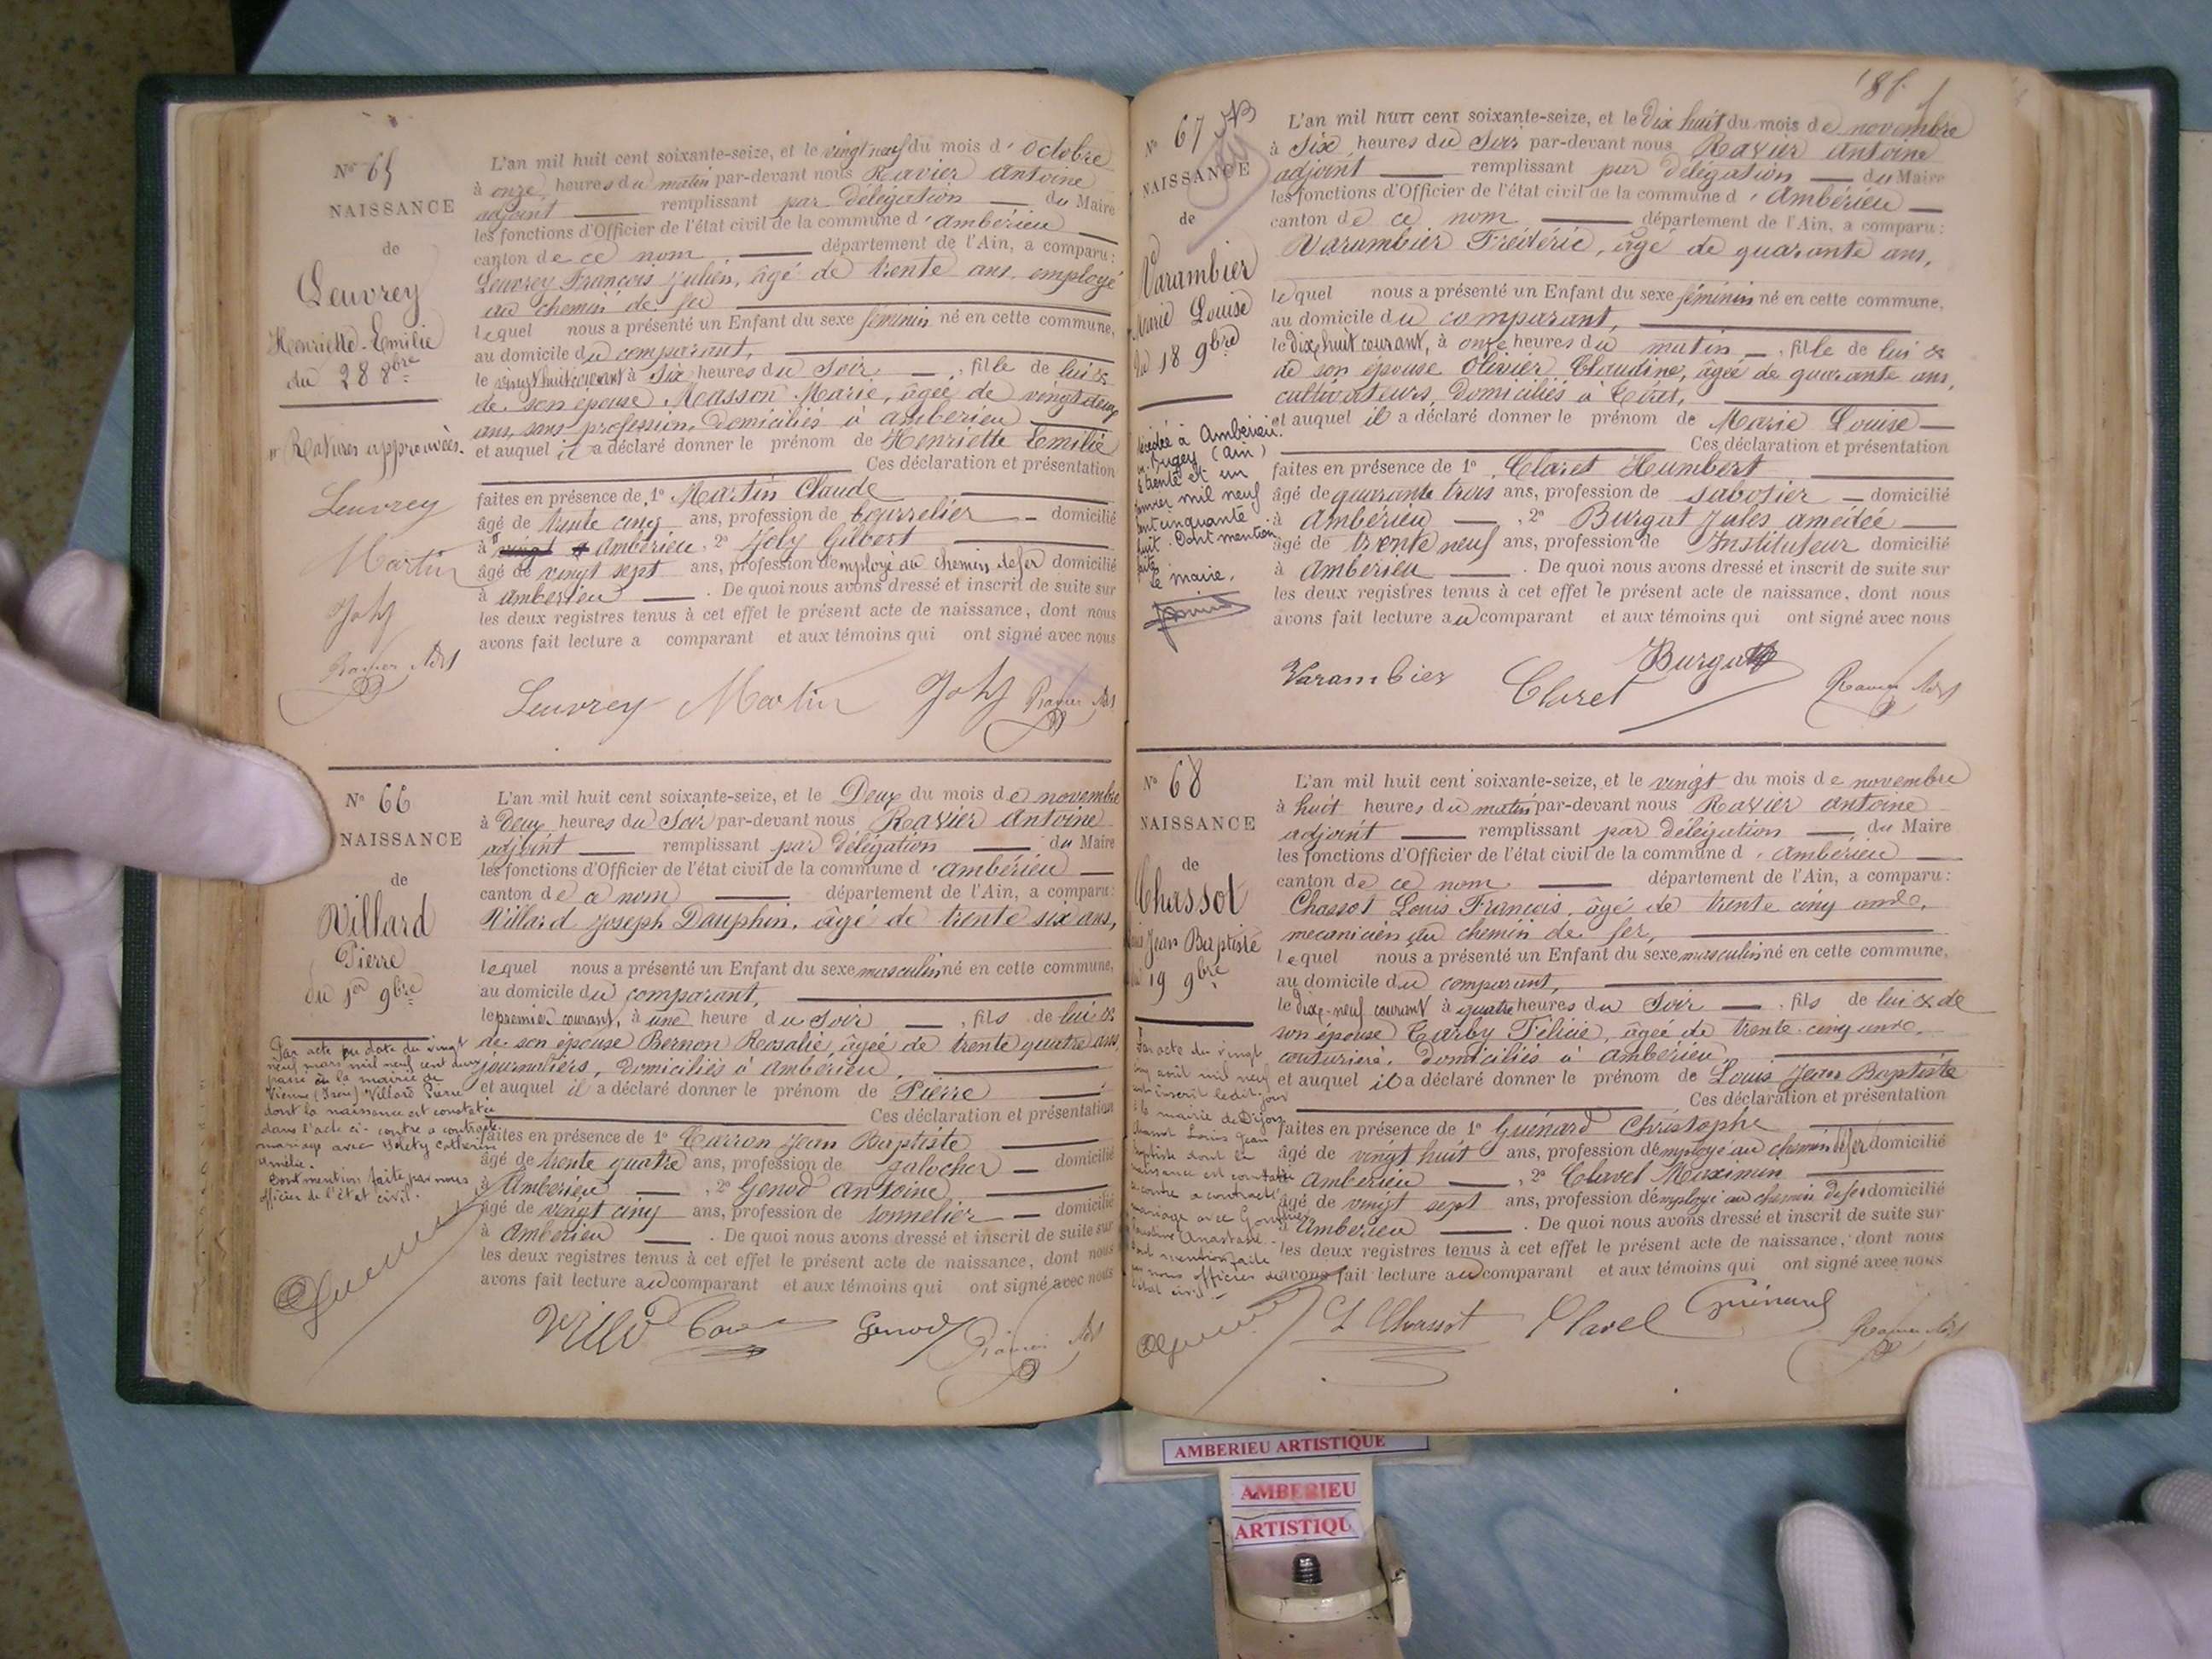 N° 65
NAISSANCE
de
Leuvrey
Henriette Emilie
du 28 8bre
Ratures approuvées.
Leuvrey
Martin
Joly
Ravier Adj
L'an mil huit cent soixante-seize, et le vingt neuf du mois d'octobre
à onze heures du matin par-devant nous Ravier Antoine
adjoint remplissant par délégation du Maire
les fonctions d'Officier de l'état civil de la commune d'Ambérieu
canton de ce nom département de l'Ain, a comparu:
Leuvrey François Julien, âgé de trente ans, employé
au chemin de fer
lequel nous a présenté un Enfant du sexe féminin né en cette commune,
au domicile du comparant,
le vingt huit courant à six heures du soir, fille de lui &
de son épouse Masson Marie, âgée de vingt deux
ans, sans profession, domiciliés à Ambérieu
et auquel il a déclaré donner le prénom de Henriette Emilie
Ces déclaration et présentation
faites en présence de 1° Martin Claude
âgé de trente cinq ans, profession de bourrelier domicilié
à Ambérieu, 2° Joly Gilbert
âgé de vingt sept ans, profession d'employé au chemin de fer domicilié
à Ambérieu. De quoi nous avons dressé et inscrit de suite sur
les deux registres tenus à cet effet le présent acte de naissance, dont nous
avons fait lecture a comparant et aux témoins qui ont signé avec nous
Leuvrey Martin Joly Ravier Adj
N° 66
NAISSANCE
de
Villard
Pierre
du 1er 9bre
Par acte en date du vingt
neuf mars mil neuf cent deux
passé à la mairie de
Vienne (Isère) Villard Pierre
dont la naissance est constatée
dans l'acte ci-contre a contracté
mariage avec Catherine
Amélie.
Dont mention faite par nous
officier de l'état civil.
L'an mil huit cent soixante-seize, et le Deux du mois de novembre
à Deux heures du Soir par-devant nous Ravier Antoine
adjoint remplissant par délégation du Maire
les fonctions d'Officier de l'état civil de la commune d'Ambérieu
canton de ce nom département de l'Ain, a comparu:
Villard Joseph Dauphin, âgé de trente six ans,
lequel nous a présenté un Enfant du sexe masculin né en cette commune,
au domicile du comparant,
le premier courant, à une heure du soir, fils de lui &
de son épouse Bernon Rosalie, âgée de trente quatre ans,
journaliers, domiciliés à Ambérieu,
et auquel il a déclaré donner le prénom de Pierre
Ces déclaration et présentation
faites en présence de 1° Carron Jean Baptiste
âgé de trente quatre ans, profession de galocher domicilié
à Ambérieu, 2° Genod Antoine
âgé de vingt cinq ans, profession de tonnelier domicilié
à Ambérieu. De quoi nous avons dressé et inscrit de suite sur
les deux registres tenus à cet effet le présent acte de naissance, dont nous
avons fait lecture au comparant et aux témoins qui ont signé avec nous
Genod Ravier Adj
N° 67
NAISSANCE
de
Varambier
Marie Louise
du 18 9bre
décédée à Ambérieu
en Bugey (Ain)
le trente et un
janvier mil neuf
cent cinquante
huit. Dont mention
faite
le maire,
L'an mil huit cent soixante-seize, et le dix huit du mois de novembre
à Six heures du Soir par-devant nous Ravier Antoine
adjoint remplissant par délégation du Maire
les fonctions d'Officier de l'état civil de la commune d'Ambérieu
canton de ce nom département de l'Ain, a comparu:
Varambier Frédéric, âgé de quarante ans,
lequel nous a présenté un Enfant du sexe féminin né en cette commune,
au domicile du comparant,
le dix huit courant, à onze heures du matin, fille de lui &
de son épouse Olivier Claudine, âgée de quarante ans,
cultivateurs, domiciliés à
et auquel il a déclaré donner le prénom de Marie Louise
Ces déclaration et présentation
faites en présence de 1° Claret Humbert
âgé de quarante trois ans, profession de sabotier domicilié
à Ambérieu, 2° Burgat Jules Amédée
âgé de trente neuf ans, profession de Instituteur domicilié
à Ambérieu. De quoi nous avons dressé et inscrit de suite sur
les deux registres tenus à cet effet le présent acte de naissance, dont nous
avons fait lecture au comparant et aux témoins qui ont signé avec nous
Varambier Claret Burgat Ravier Adj
N° 68
NAISSANCE
de
Chassot
Louis Jean Baptiste
du 19 9bre
Par acte du vingt
cinq août mil neuf
cent inscrit ledit jour
à la mairie de Dijon
Chassot Louis Jean
Baptiste dont la
naissance est constatée
ci-contre a contracté
mariage avec
Anastasie
Dont mention faite
par nous officier de
l'état civil
L'an mil huit cent soixante-seize, et le vingt du mois de novembre
à huit heures du matin par-devant nous Ravier Antoine
adjoint remplissant par délégation du Maire
les fonctions d'Officier de l'état civil de la commune d'Ambérieu
canton de ce nom département de l'Ain, a comparu:
Chassot Louis François, âgé de trente cinq ans,
mecanicien au chemin de fer,
lequel nous a présenté un Enfant du sexe masculin né en cette commune,
au domicile du comparant,
le dix-neuf courant à quatre heures du soir, fils de lui & de
son épouse Carby Félicie, âgée de trente cinq ans,
couturière, domiciliés à Ambérieu,
et auquel il a déclaré donner le prénom de Louis Jean Baptiste
Ces déclaration et présentation
faites en présence de 1° Guénard Christophe
âgé de vingt huit ans, profession d'employé au chemin de fer domicilié
à Ambérieu, 2° Clavel Maximin
âgé de vingt sept ans, profession d'employé au chemin de fer domicilié
à Ambérieu. De quoi nous avons dressé et inscrit de suite sur
les deux registres tenus à cet effet le présent acte de naissance, dont nous
avons fait lecture au comparant et aux témoins qui ont signé avec nous
L Chassot Clavel Guénard Ravier Adj
AMBERIEU ARTISTIQUE
AMBERIEU
ARTISTIQU